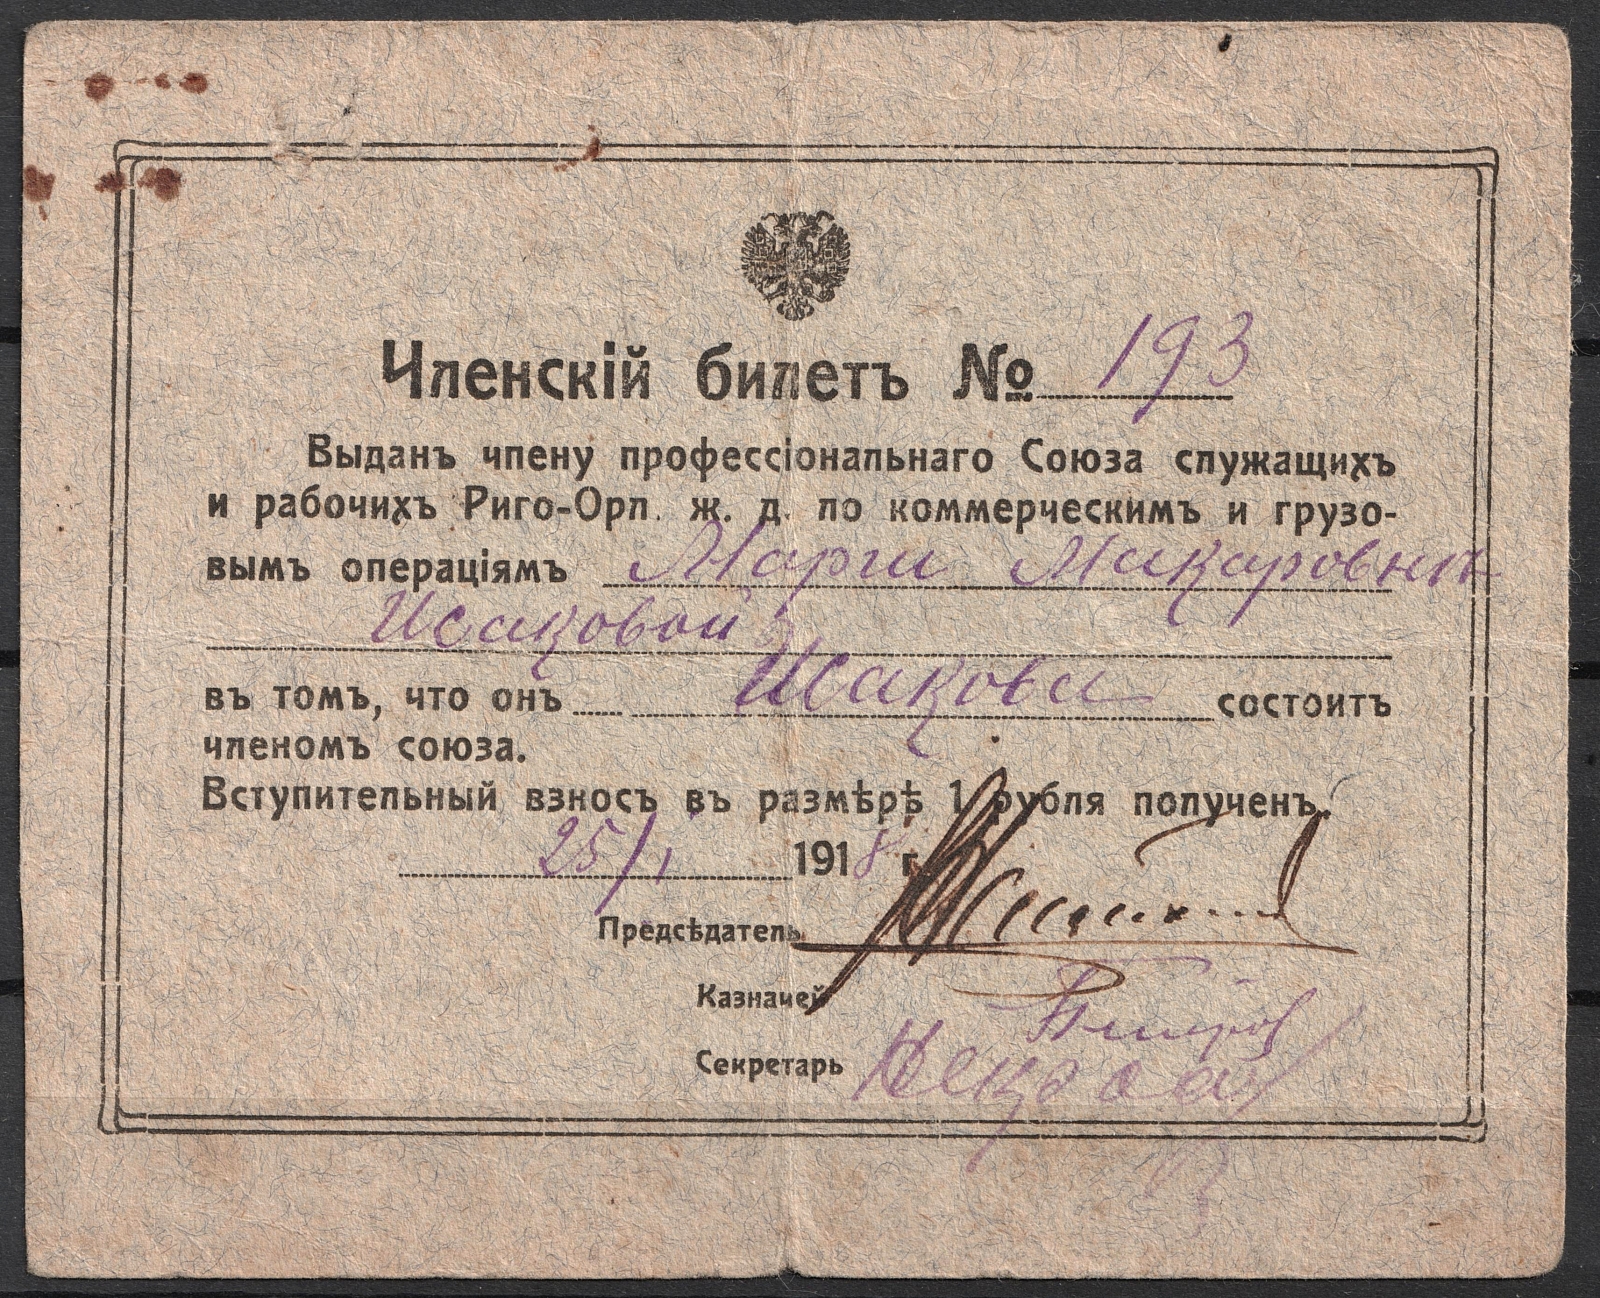 Членскій билетъ № 193
Выданъ члену профессіональнаго Союза служащихъ
и рабочихъ Риго-Орл. ж. д. по коммерческимъ и грузо-
вымъ операціямъ Марги Макаровнѣ
Исаковой
въ томъ, что онъ Исакова состоитъ
членомъ союза.
Вступительный взносъ въ размѣрѣ 1 рубля полученъ.
25/I 1918 г.
Предсѣдатель
Казначей
Секретарь